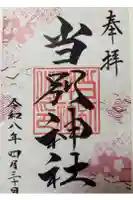 奉拝
当別神社
令和八年四月三十日